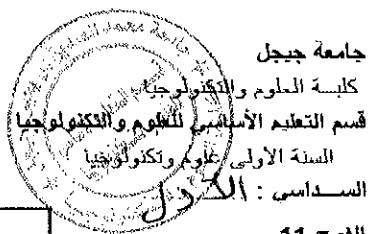 جامعة جيجل
كليسة العلوم والتكنولوجيا
قسم التعليم الأساسي للعلوم والتكنولوجيا
السنة الأولى علوم وتكنولوجيا
السداسي : الأول
11